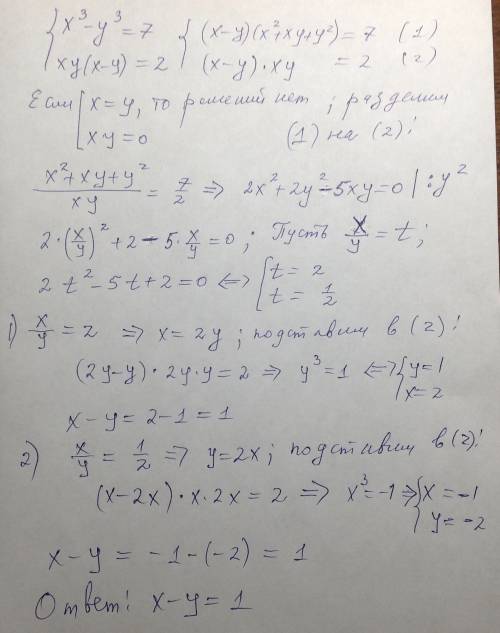 { x³-y³=7 { (x-y)(x²+xy+y²)=7 (1)
{ xy(x-y)=2 { (x-y)·xy =2 (2)
Если [ x=y, то решений нет; разделим
[ xy=0 (1) на (2):
(x²+xy+y²)/xy = 7/2 ⇒ 2x²+2y²-5xy=0 |:y²
2·(x/y)²+2-5·x/y=0; Пусть x/y=t;
2t²-5t+2=0 ⇔ [ t=2
[ t=1/2
1) x/y=2 ⇒ x=2y; подставим в (2):
(2y-y)·2y·y=2 ⇒ y³=1 ⇔ { y=1
{ x=2
x-y=2-1=1
2) x/y=1/2 ⇒ y=2x; подставим в (2):
(x-2x)·x·2x=2 ⇒ x³=-1 ⇒ { x=-1
{ y=-2
x-y = -1-(-2) = 1
Ответ: x-y=1